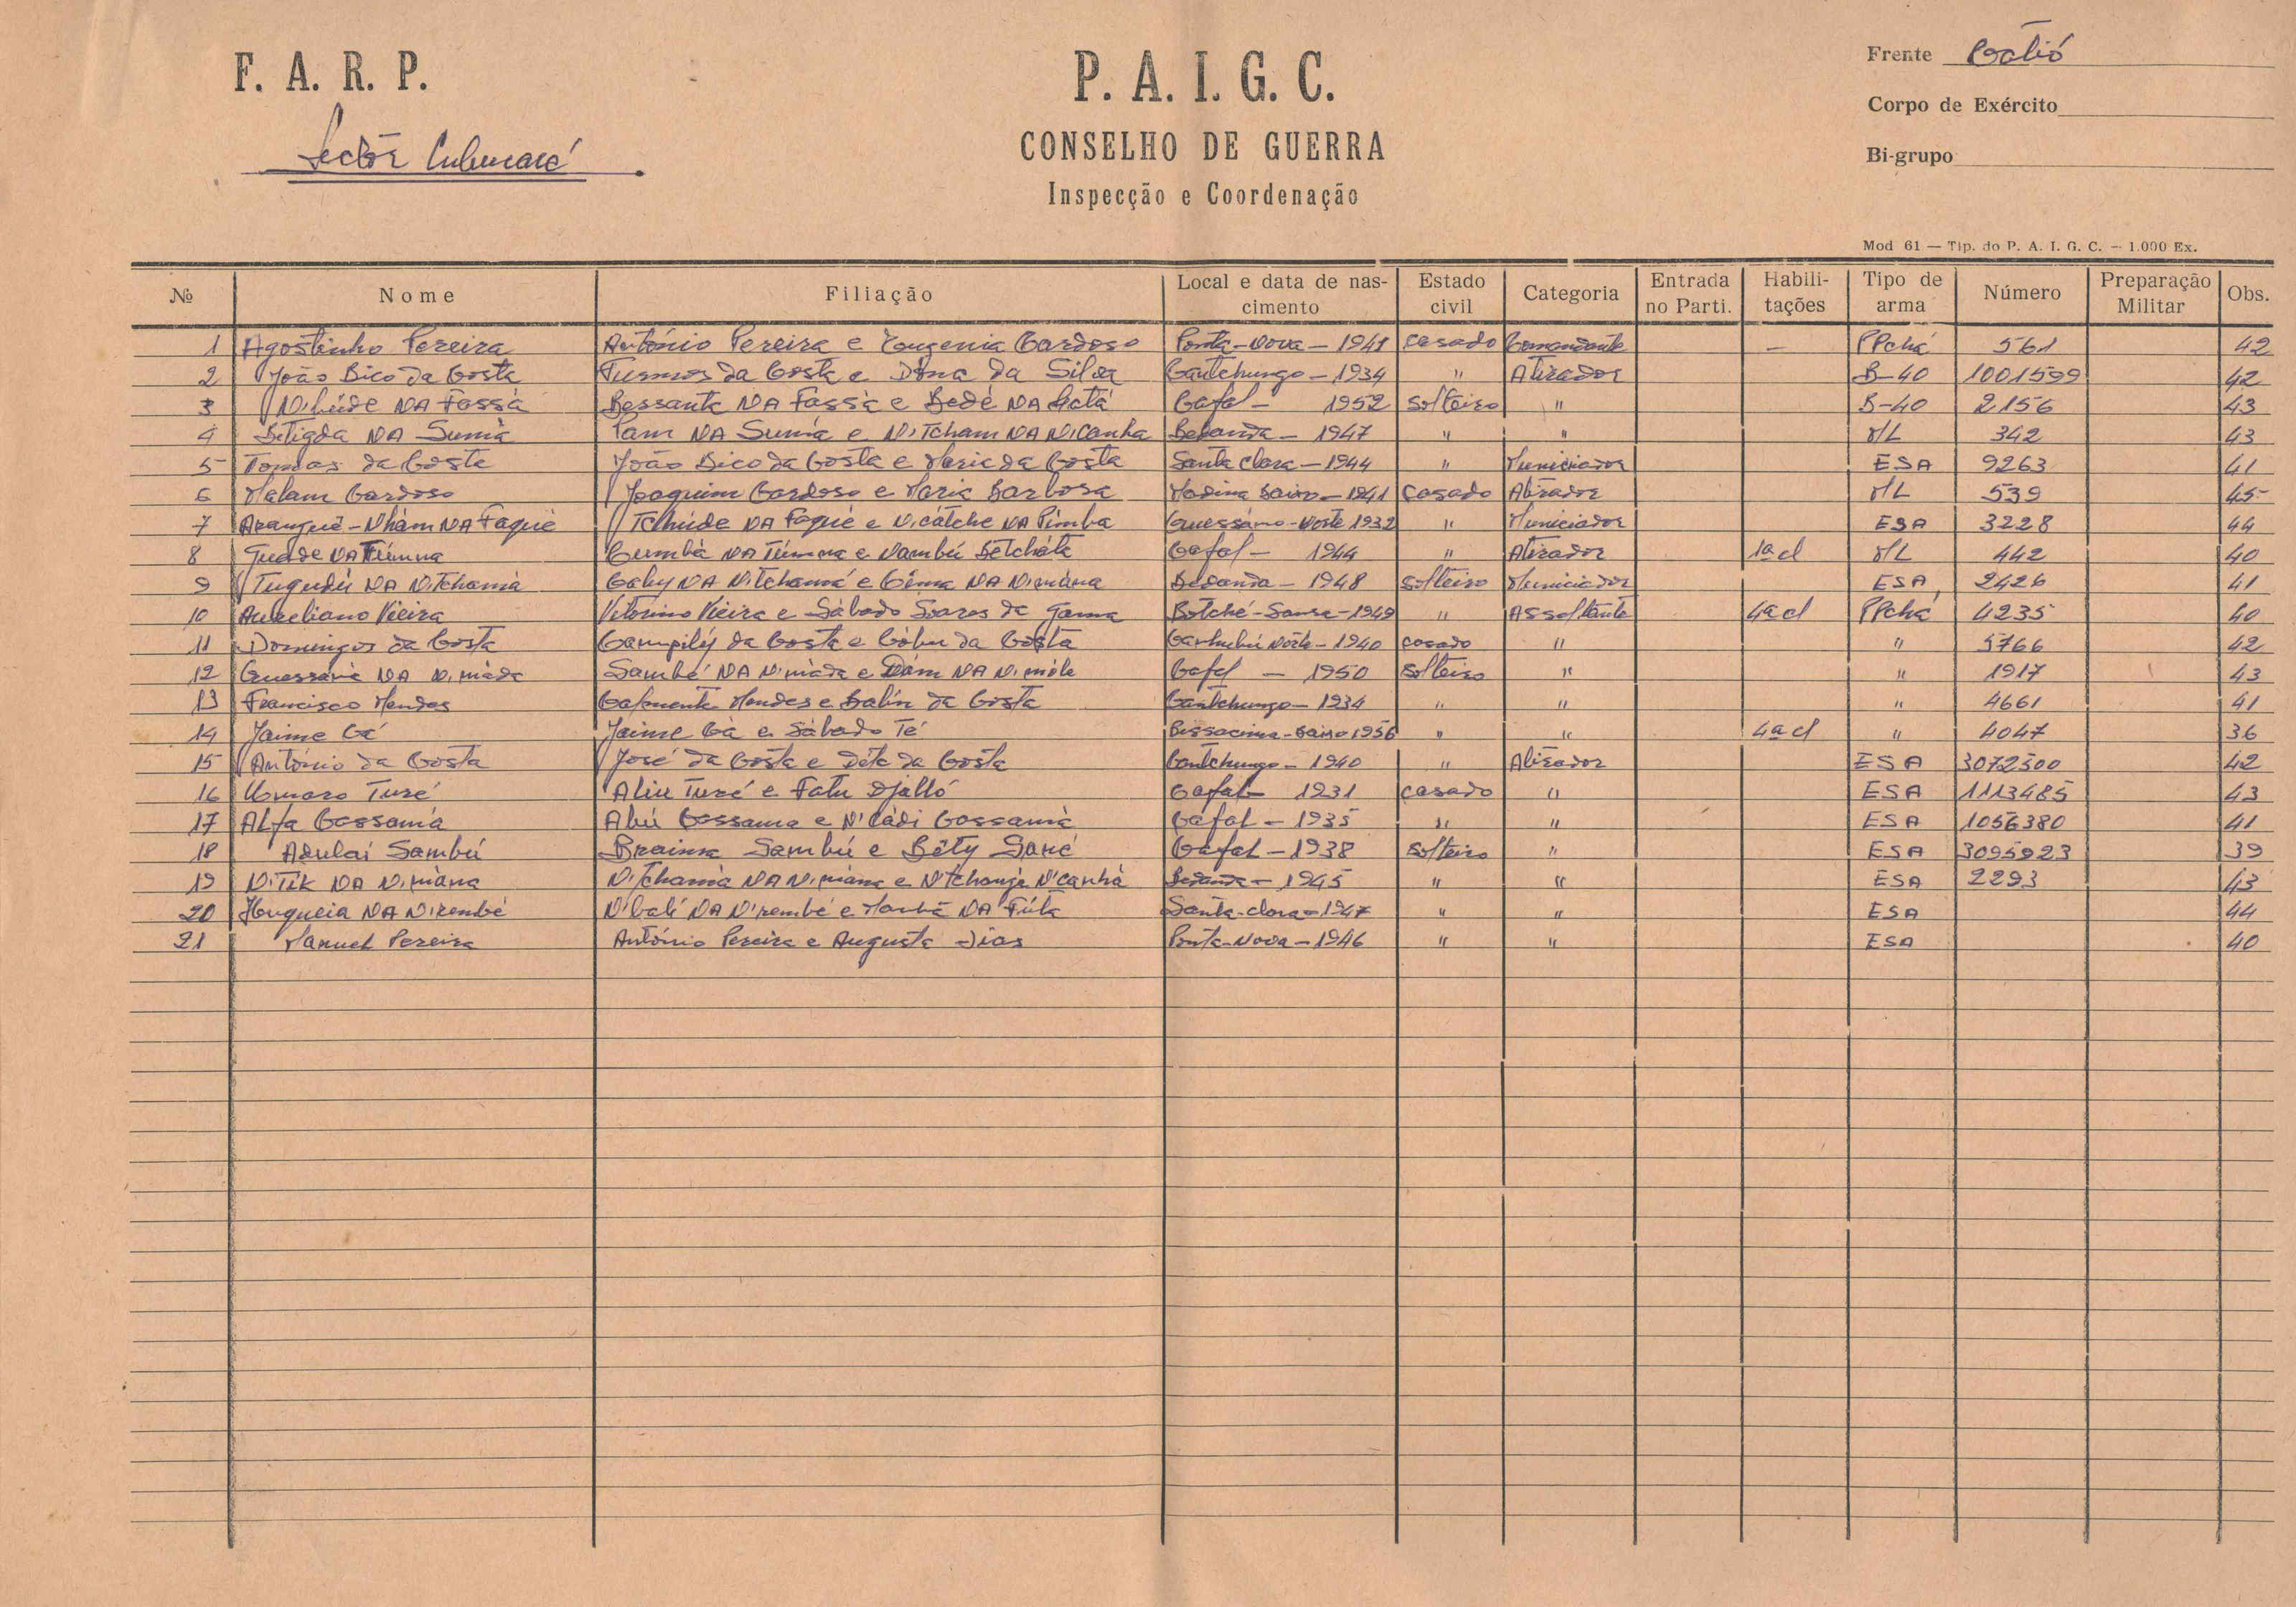 F. A. R. P.
P. A. I. G. C.
CONSELHO DE GUERRA
Inspecção e Coordenação
Sector
Frente Catió
Corpo de Exército
Bi-grupo
Mod 61 — Tip. do P. A. I. G. C. — 1.000 Ex.
№ Nome Filiação Local e data de nascimento Estado civil Categoria Entrada no Parti. Habilitações Tipo de arma Número Preparação Militar Obs.
1 Agostinho Pereira António Pereira e Eougenia Cardoso Ponta-Nova – 1941 casado Comandante — PPchá 561 42
2 João Bico da Costa da Costa e da Silva Cantchungo – 1934 " Atirador B-40 1001599 42
3 NA Fassà Bessante NA Fassà e Bedè NA Cafal – 1952 Solteiro " B-40 2156 43
4 NA Sumà NA Sumà e N'Tcham NA N'Canha Bedanda – 1947 " " M/L 342 43
5 Tomas da Costa João Bico da Costa e Maria da Costa Santa Clara – 1944 " Municiador ESA 9263 41
6 Malam Cardoso Joaquim Cardoso e Maria Barbosa Madina Baixo – 1941 casado Atirador M/L 539 45
7 NA Faquè NA Faquè e NA Pimba – Norte 1932 " Municiador ESA 3228 44
8 NA Túmna NA Túmna e Cafal – 1944 " Atirador 1ª cl M/L 442 40
9 Tugudú NA N'Tchamà NA N'Tchamá e NA Bedanda – 1948 solteiro Municiador ESA 2426 41
10 Aureliano Vieira Vitorino Vieira e Sábado Soares da Gama – 1949 " Assaltante 4ª cl PPchá 4235 40
11 Domingos da Costa da Costa e da Costa Norte – 1940 casado " " 5766 42
12 NA Sambé NA e NA Cafal – 1950 Solteiro " " 1917 43
13 Francisco Mendes Mendes e da Costa Cantchungo – 1934 " " " 4661 41
14 Jaime Cá Jaime Cá e Sábado Té Baixo 1956 " " 4ª cl " 4047 36
15 António da Costa José da Costa e da Costa Cantchungo – 1940 " Atirador ESA 3072500 42
16 Umaro Turé Aliu Turé e Fatu Djalló Cafal – 1931 casado " ESA 1113485 43
17 Alfa Cassamà Cassama e N'Cádi Cassamà Cafal – 1935 " " ESA 1056380 41
18 Adulai Sambú Braima Sambú e Sané Cafal – 1938 solteiro " ESA 3095923 39
19 N'Tik NA N'Tchamà NA e N'Canhà Bedanda – 1945 " " ESA 2293 43
20 NA N'rembé NA N'rembé e NA Santa-clara – 1947 " " ESA 44
21 Manuel Pereira António Pereira e Augusta Dias Ponta-Nova – 1946 " " ESA 40